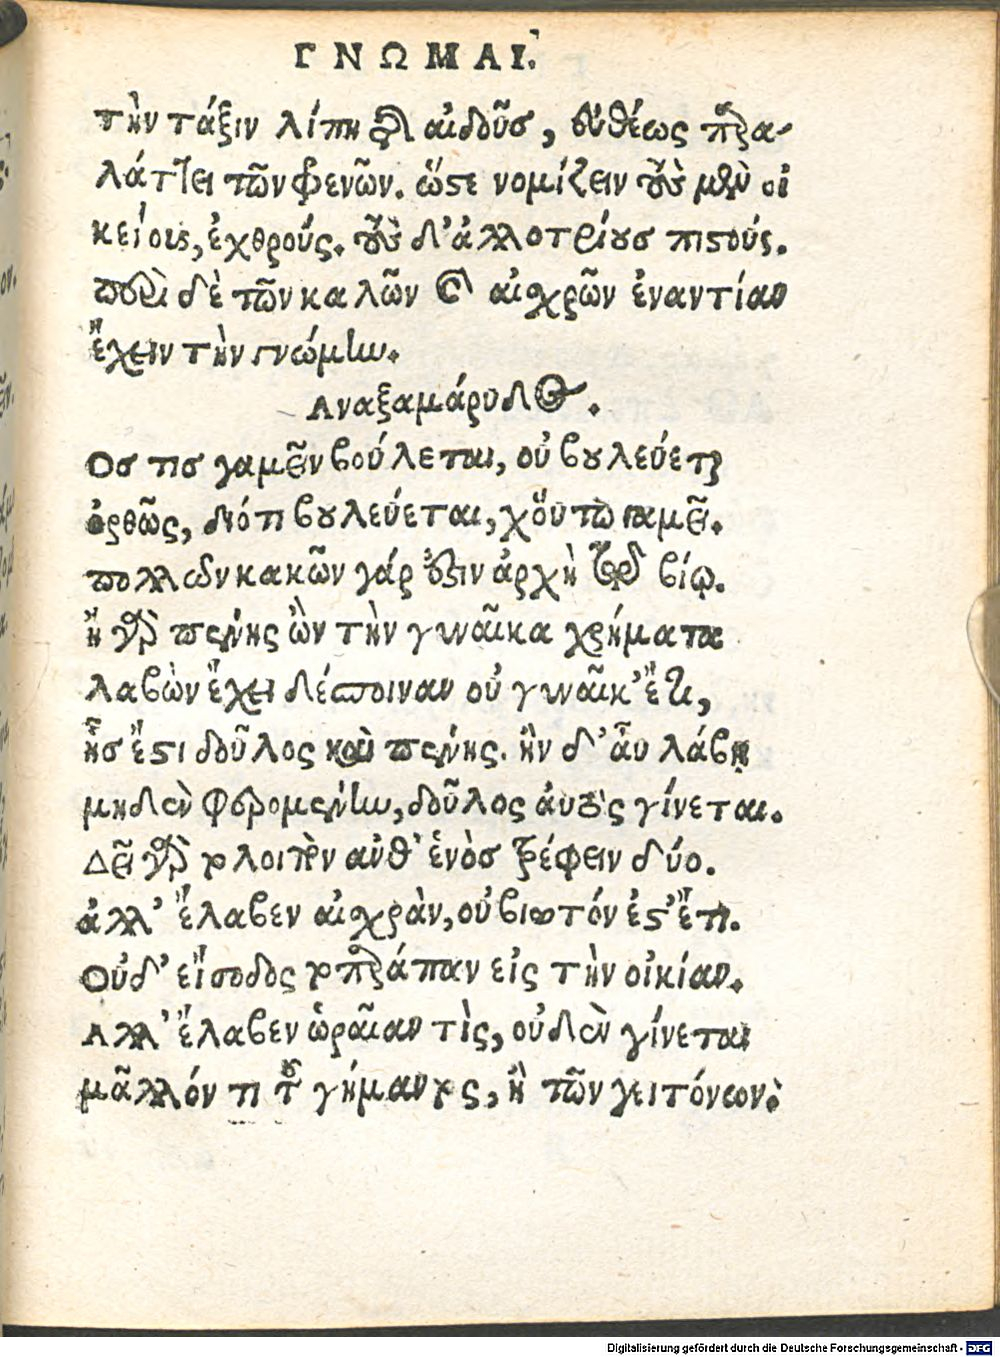 ΓΝΩΜΑΙ.
τὴν τάξιν λίπη διὰ αἰδοῦσ, εὐθέως παραλ-
λάττει τῶν φρενῶν. ὥστε νομίζειν τοὺς μὲν οἰ
κείους, ἐχθρούς. τοὺς δ' ἀλλοτρίουσ πιστούς.
περὶ δὲ τῶν καλῶν καὶ αἰσχρῶν ἐναντίαν
ἔχειν τὴν γνώμην.
Αναξαμάρυδος.
Οσ τισ γαμεῖν βούλεται, οὐ βουλεύεται
ὀρθῶς, διότι βουλεύεται, χὅυτω γαμεῖ.
πολλων κακῶν γάρ ἐστιν ἀρχὴ τῷδε βίῳ.
ἢ γὰρ πένης ὢν τὴν γυναῖκα χρήματα
λαβὼν ἔχει δέσποιναν οὐ γυναῖκ' ἔτι,
ἧσ ἔστι δοῦλος καὶ πένης. ἢν δ' ἂν λάβῃ
μηδὲν φερομένην, δοῦλος ἀυτὸς γίνεται.
Δεῖ γὰρ τὸ λοιπὸν αὐθ' ἑνὸσ τρέφειν δύο.
ἀλλ' ἔλαβεν αἰσχρὰν, οὐ βιωτόν ἐστ' ἔτι.
Οὐδ' εἴσοδος τὸ παράπαν εἰς τὴν οἰκίαν.
Αλλ' ἔλαβεν ὡραῖαν τὶς, οὐδὲν γίνεται
μᾶλλόν τι τοῦ γήμαντος, ἢ τῶν γειτόνων.
Digitalisierung gefördert durch die Deutsche Forschungsgemeinschaft - DFG